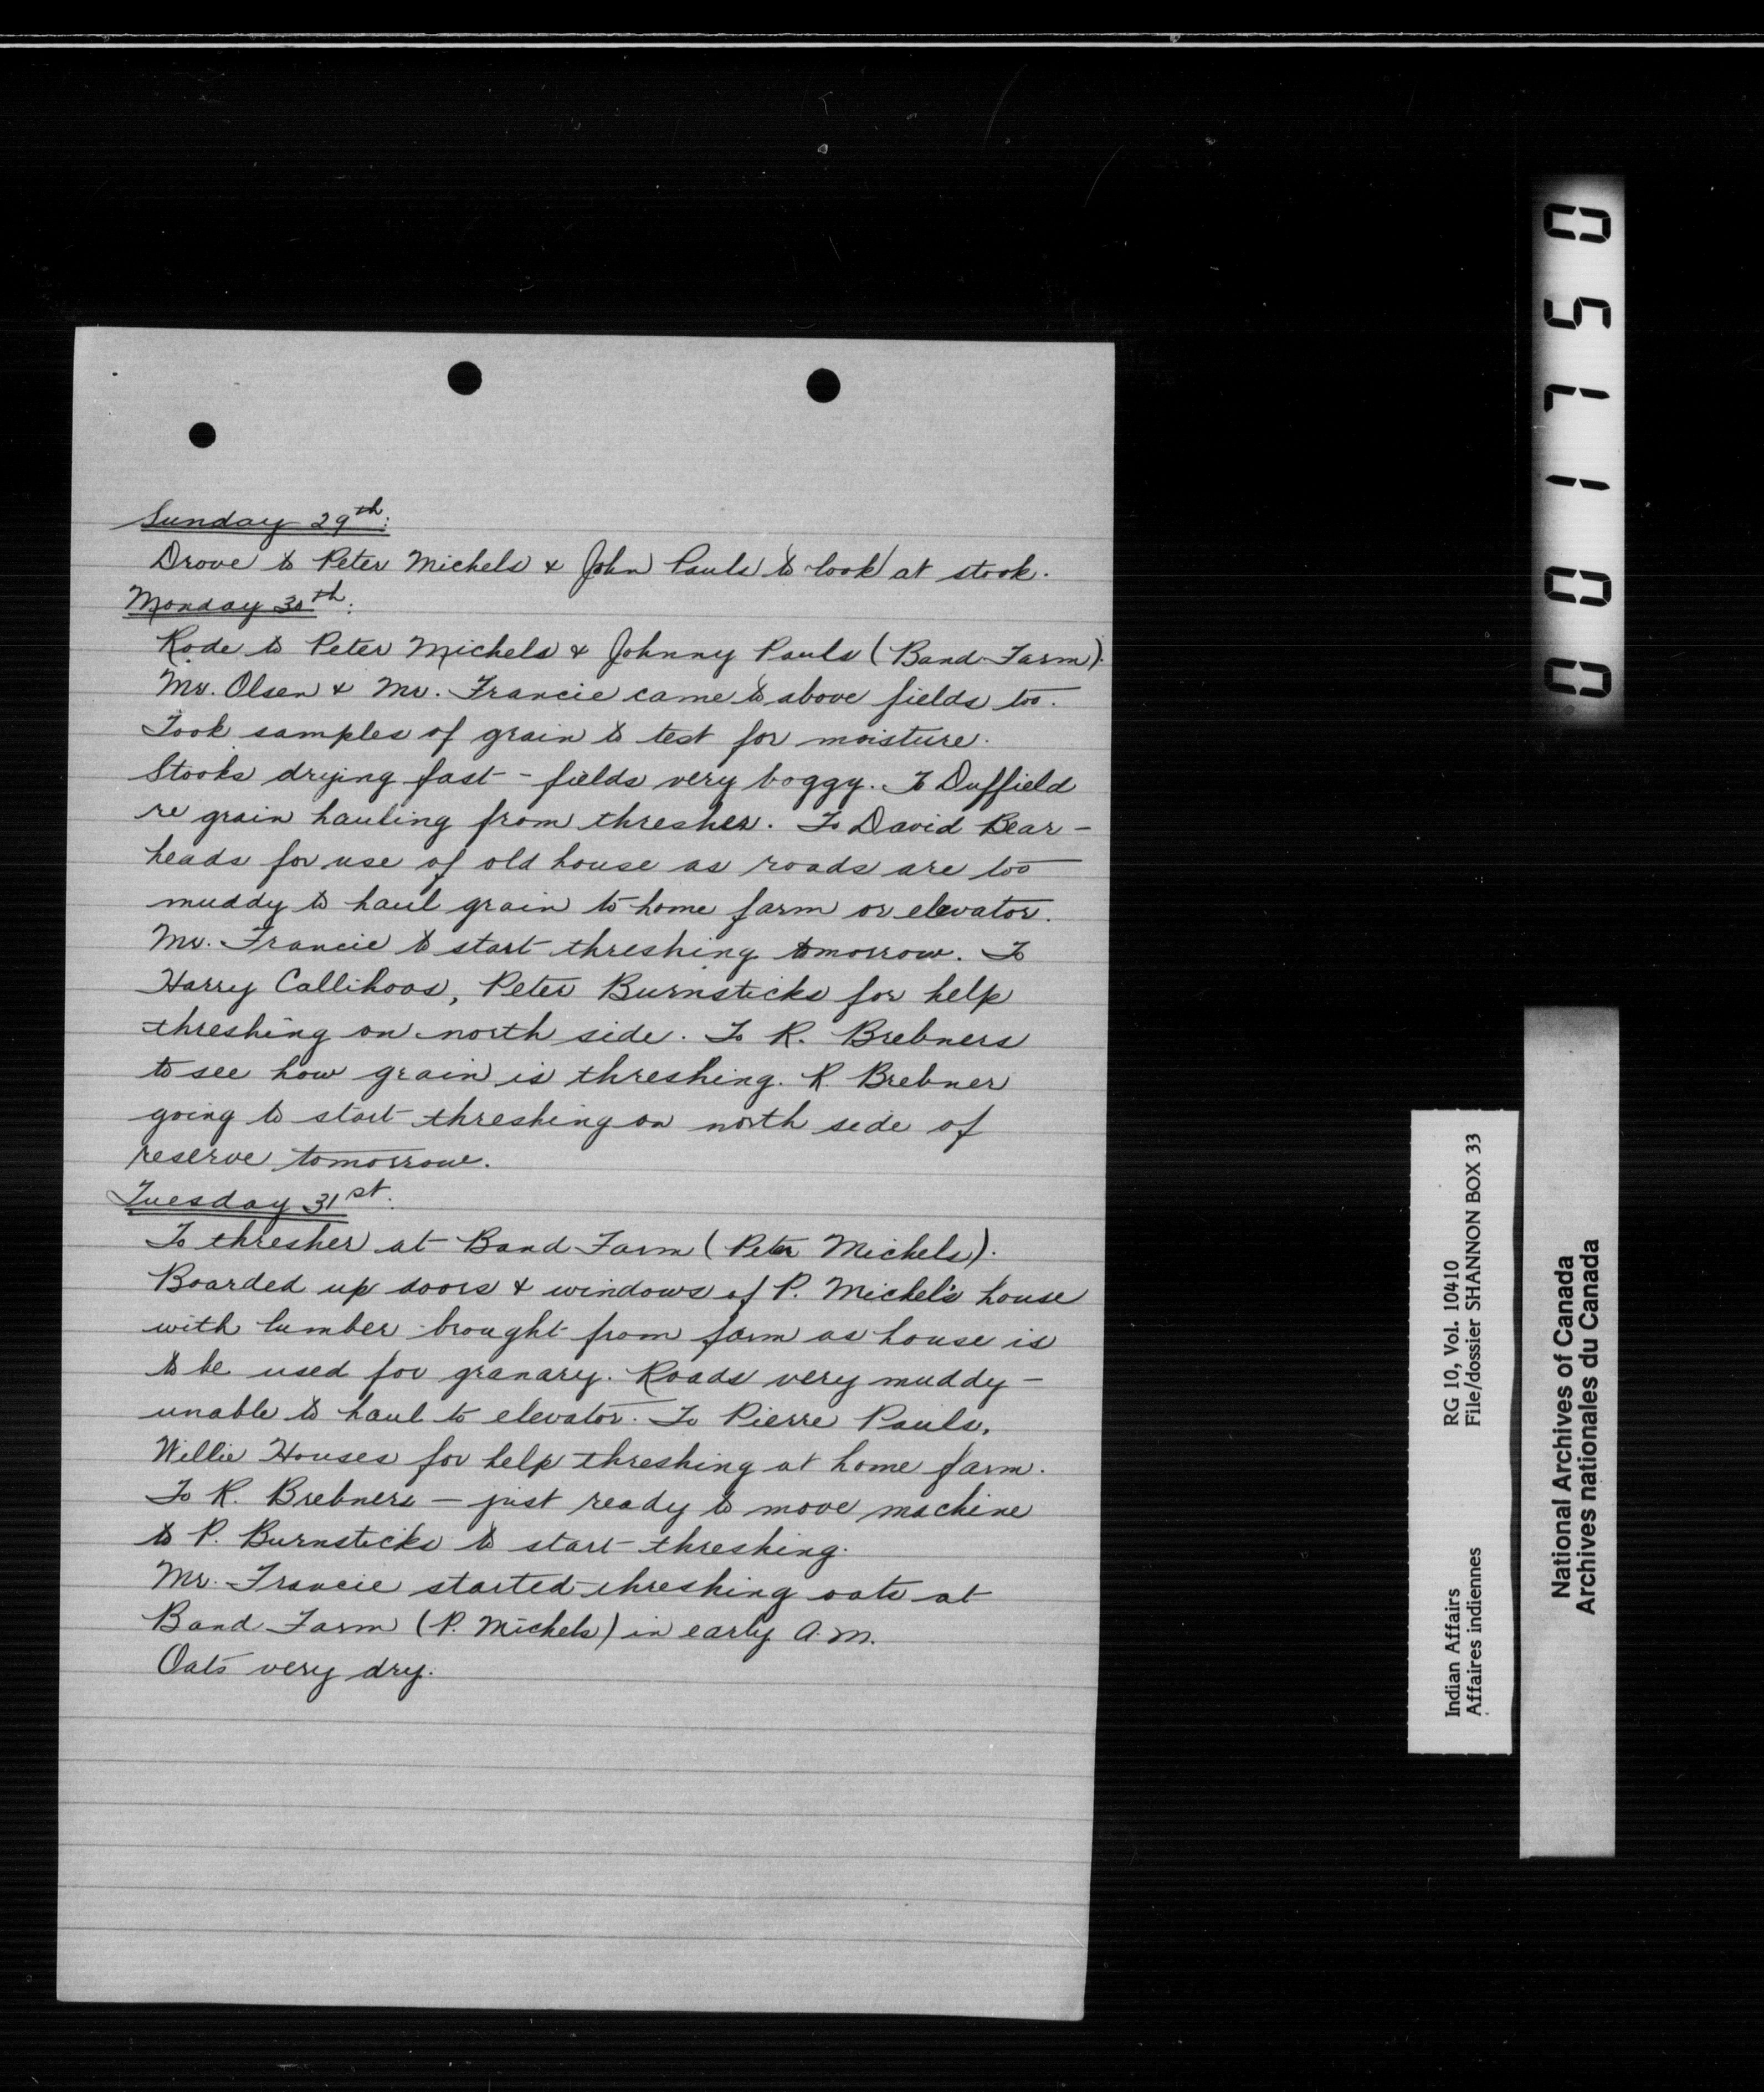 Sunday 29th:
Drove to Peter Michels & John Pauls to look at stook.
Monday 30th:
Rode to Peter Michels & Johnny Pauls (Band Farm).
Mr. Olsen & Mr. Francie came to above fields too.
Took samples of grain to test for moisture.
Stooks drying fast - fields very boggy. To Duffield
re grain hauling from thresher. To David Bear-
heads for use of old house as roads are too
muddy to haul grain to home farm or elevator.
Mr. Francie to start threshing tomorrow. To
Harry Callihoos, Peter Burnsticks for help
threshing on north side. To R. Brebners
to see how grain is threshing. R. Brebner
going to start threshing on north side of
reserve tomorrow.
Tuesday 31st.
To thresher at Band Farm (Peter Michels).
Boarded up doors & windows of P. Michel's house
with lumber brought from farm as house is
to be used for granary. Roads very muddy -
unable to haul to elevator. To Pierre Pauls,
Willie Houses for help threshing at home farm.
To R. Brebners - just ready to move machine
to P. Burnsticks to start threshing.
Mr. Francie started threshing oats at
Band Farm (P. Michels) in early A.M.
Oats very dry.
001750
Indian Affairs RG 10, Vol. 10410
Affaires indiennes File/dossier SHANNON BOX 33
National Archives of Canada
Archives nationales du Canada